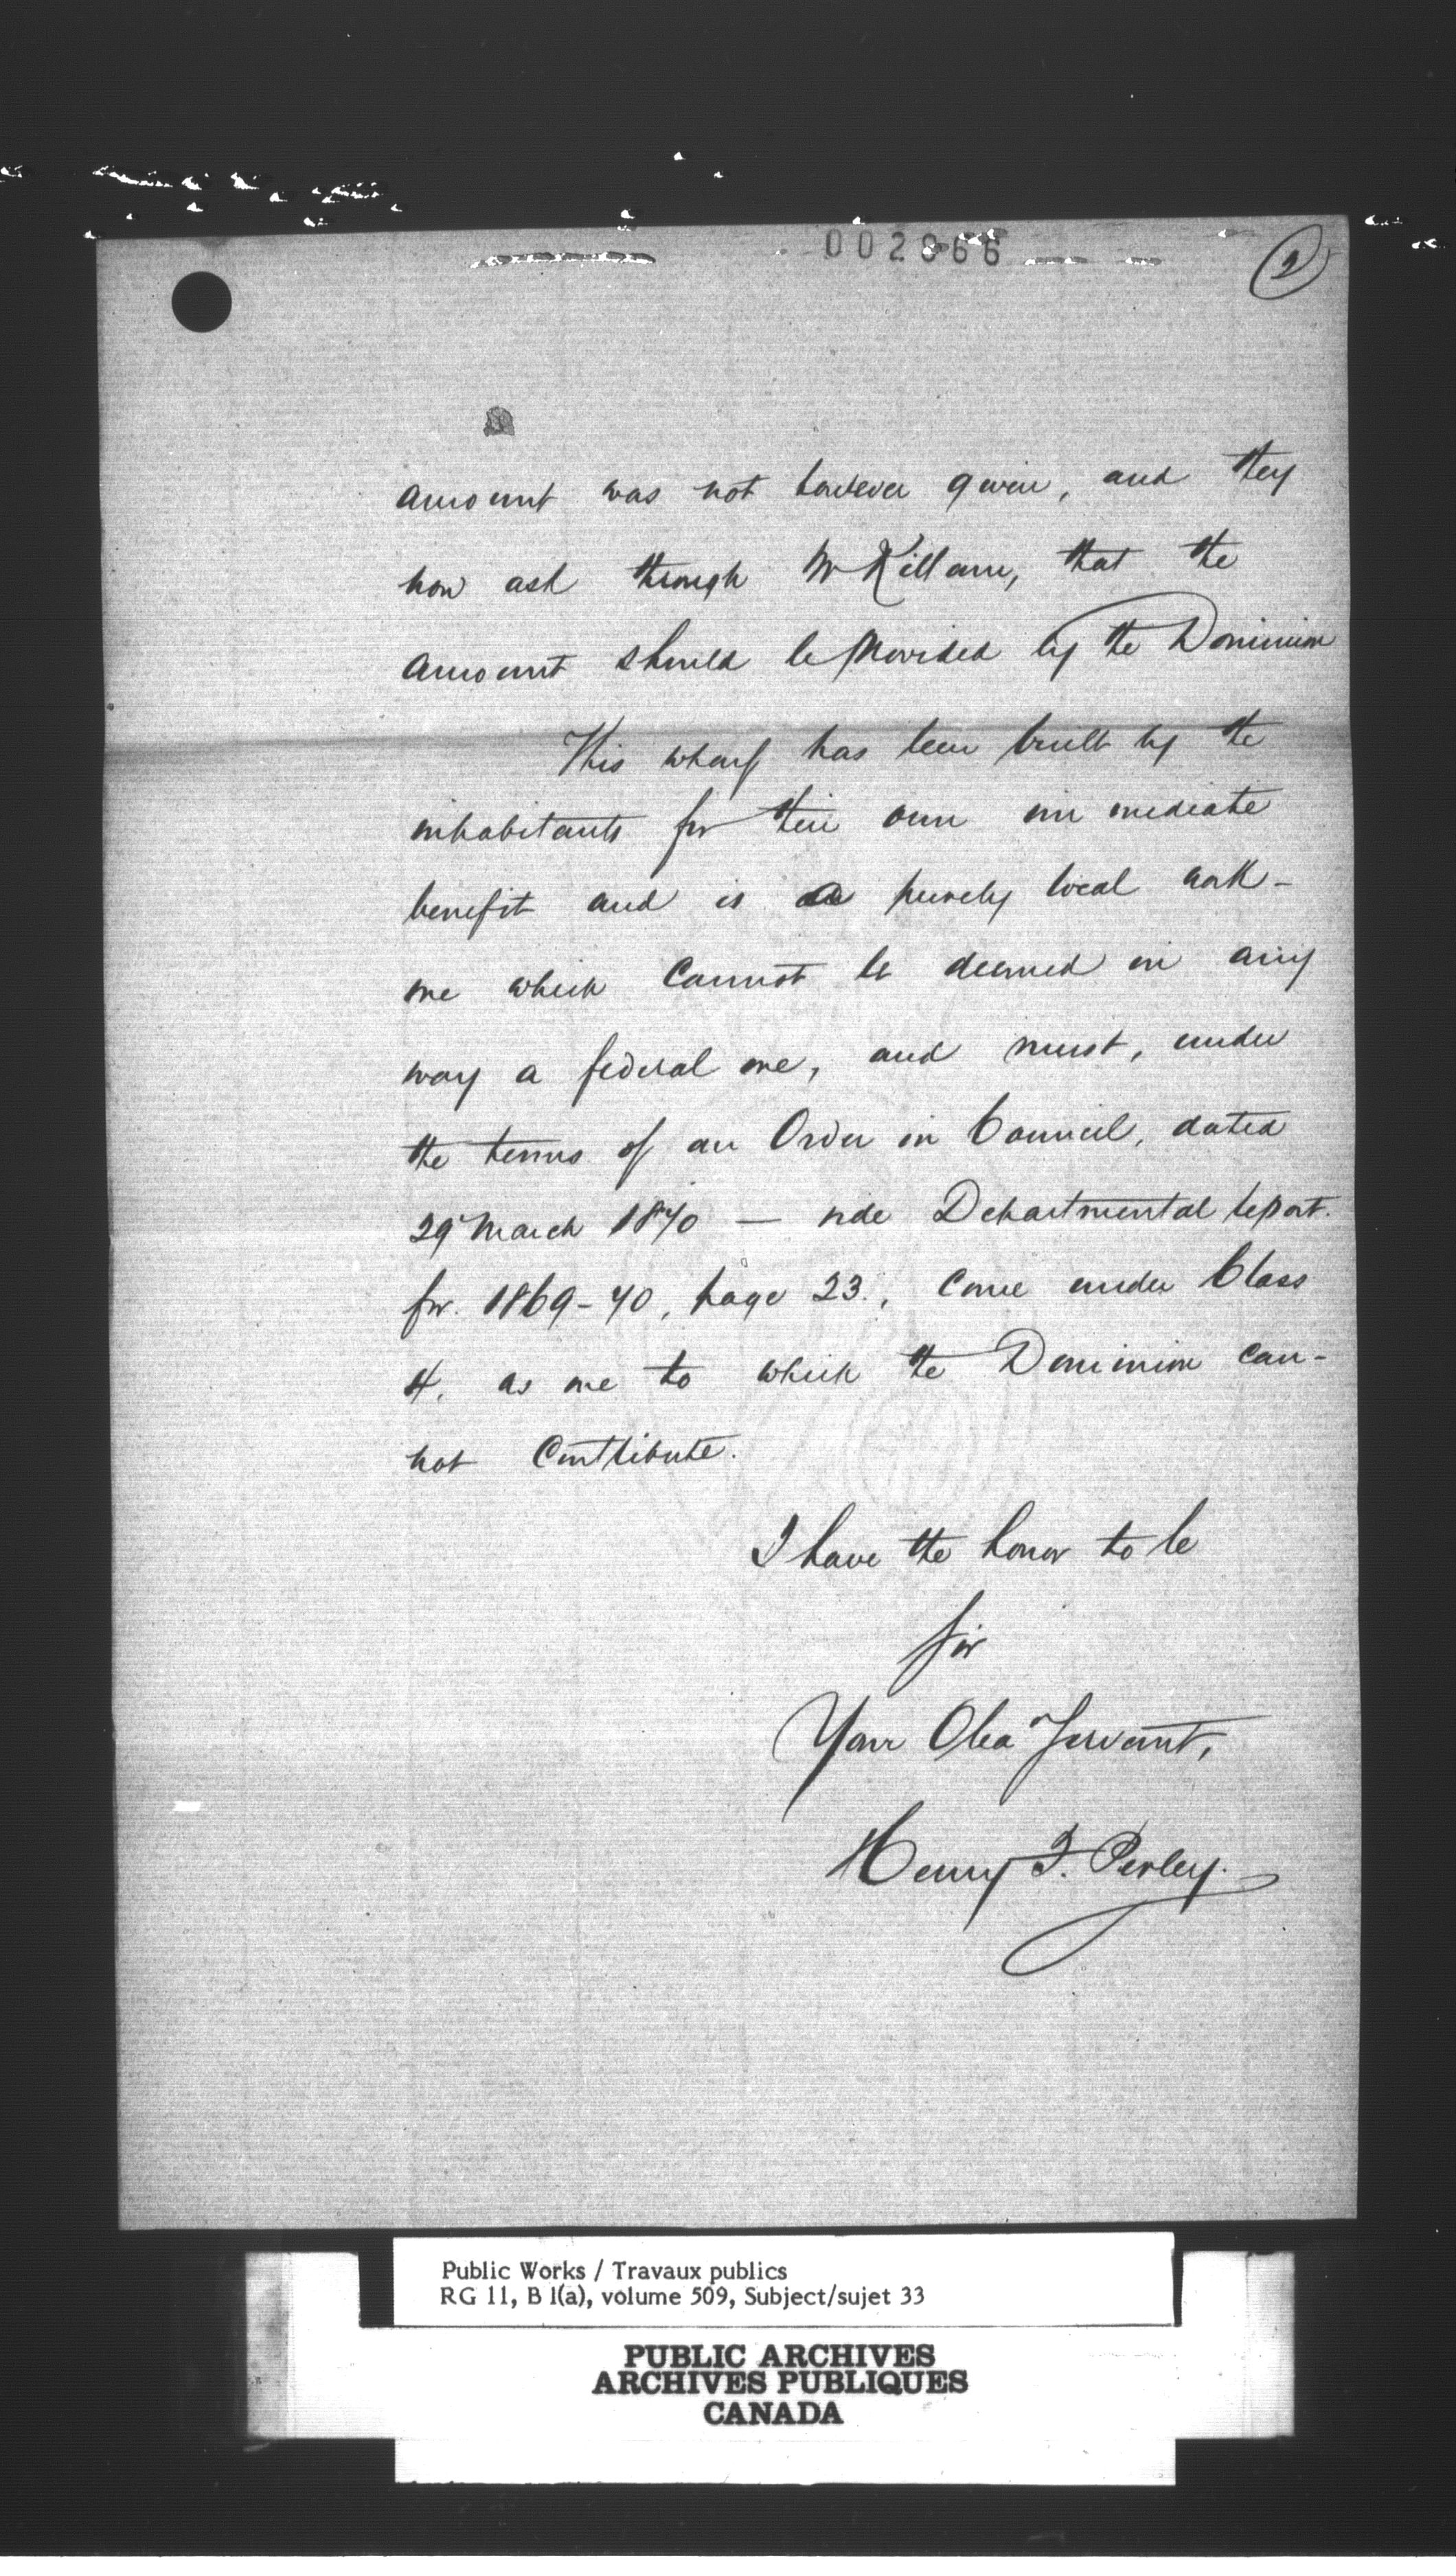 002866
2
amount was not however given, and they
now ask through Mr Killam, that the
amount should be provided by the Dominion
This wharf has been built by the
inhabitants for their own immediate
benefit and is a purely local work -
one which cannot be deemed in any
way a federal one, and must, under
the terms of an Order in Council, dated
29 March 1870 — vide Departmental report
for 1869-70, page 23., come under Class
4. as one to which the Dominion can-
not contribute.
I have the honor to be
Sir
Your Obt Servant,
Henry F. Perley.
Public Works / Travaux publics
RG 11, B 1(a), volume 509, Subject/sujet 33
PUBLIC ARCHIVES
ARCHIVES PUBLIQUES
CANADA